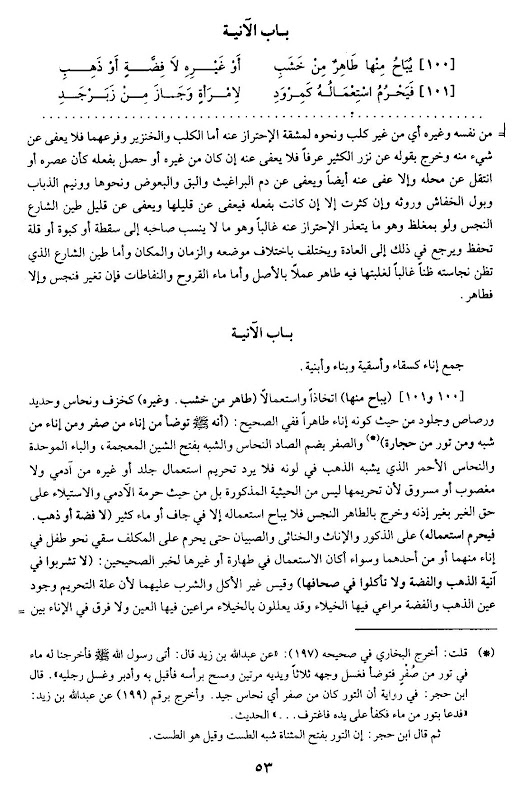 باب الآنية
[١٠٠] يُبَاحُ مِنْها طَاهِرٌ مِنْ خَشَبِ أَوْ غَيْـرِهِ لاَ فِضَّةٍ أَوْ ذَهَـبِ
[١٠١] فَيَحْرُمُ اسْتِعْمَالُـهُ كَمِرْوَدِ لامْرَأةٍ وَجَـازَ مِـنْ زَبَرْجَـدِ
= من نفسه وغيره أي من غير كلب ونحوه لمشقة الإحتراز عنه أما الكلب والخنزير وفرعهما فلا يعفى عن
شيء منه وخرج بقوله عن نزر الكثير عرفاً فلا يعفى عنه إن كان من غيره أو حصل بفعله كأن عصره أو
انتقل عن محله وإلا عفى عنه أيضاً ويعفى عن دم البراغيث والبق والبعوض ونحوها وونيم الذباب
وبول الخفاش وروثه وإن كثرت إلا إن كانت بفعله فيعفى عن قليلها ويعفى عن قليل طين الشارع
النجس ولو بمغلظ وهو ما يتعذر الإحتراز عنه غالباً وهو ما لا ينسب صاحبه إلى سقطة أو كبوة أو قلة
تحفظ ويرجع في ذلك إلى العادة ويختلف باختلاف موضعه والزمان والمكان وأما طين الشارع الذي
تظن نجاسته ظناً غالباً لغلبتها فيه طاهر عملاً بالأصل وأما ماء القروح والنفاطات فإن تغير فنجس وإلا
فطاهر.
باب الآنية
جمع إناء كسقاء وأسقية وبناء وأبنية.
[١٠٠ و١٠١] (يباح منها) اتخاذاً واستعمالاً (طاهر من خشب. وغيره) كخزف ونحاس وحديد
ورصاص وجلود من حيث كونه إناء طاهراً ففي الصحيح: (أنه ﷺ توضأ من إناء من صفر ومن إناء من
شبه ومن تور من حجارة)(*) والصفر بضم الصاد النحاس والشبه بفتح الشين المعجمة، والباء الموحدة
والنحاس الأحمر الذي يشبه الذهب في لونه فلا يرد تحريم استعمال جلد أو غيره من آدمي ولا
مغصوب أو مسروق لأن تحريمها ليس من الحيثية المذكورة بل من حيث حرمة الآدمي والاستيلاء على
حق الغير بغير إذنه وخرج بالطاهر النجس فلا يباح استعماله إلا في جاف أو ماء كثير (لا فضة أو ذهب.
فيحرم استعماله) على الذكور والإناث والخناثى والصبيان حتى يحرم على المكلف سقي نحو طفل في
إناء منهما أو من أحدهما وسواء أكان الاستعمال في طهارة أو غيرها لخبر الصحيحين: (لا تشربوا في
آنية الذهب والفضة ولا تأكلوا في صحافها) وقيس غير الأكل والشرب عليهما لأن علة التحريم وجود
عين الذهب والفضة مراعي فيها الخيلاء وقد يعللون بالخيلاء مراعين فيها العين ولا فرق في الإناء بين =
(*) قلت: أخرج البخاري في صحيحه (١٩٧): «عن عبدالله بن زيد قال: أتى رسول الله ﷺ فأخرجنا له ماء
في تور من صُفْرٍ فتوضأ فغسل وجهه ثلاثاً ويديه مرتين ومسح برأسه فأقبل به وأدبر وغسل رجليه». قال
ابن حجر: في رواية أن التور كان من صفر أي نحاس جيد. وأخرج برقم (١٩٩) عن عبدالله بن زيد:
«فدعا بتور من ماء فكفأ على يده فاغترف...» الحديث.
ثم قال ابن حجر: إن التور بفتح المثناة شبه الطست وقيل هو الطست.
٥٣